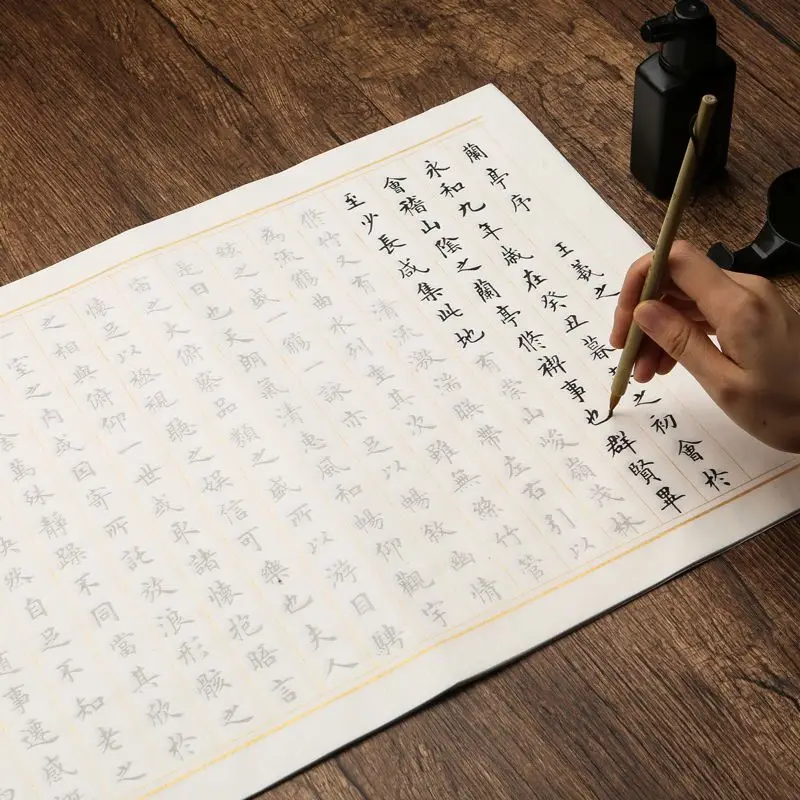 蘭亭序 王羲之
永和九年歲在癸丑暮之初會於
會稽山陰之蘭亭修禊事也群賢畢
至少長咸集此地有崇山峻嶺茂林
修竹又有清流激湍暎帶左右引以
為流觴曲水列坐其次雖無絲竹管
絃之盛一觴一詠亦足以暢敘幽情
是日也天朗氣清惠風和暢仰觀宇
宙之大俯察品類之盛所以游目騁
懷足以極視聽之娛信可樂也夫人
之相與俯仰一世或取諸懷抱晤言
室之內或因寄所託放浪形骸之
舍萬殊靜躁不同當其欣於
快然自足不知老之
事遷感